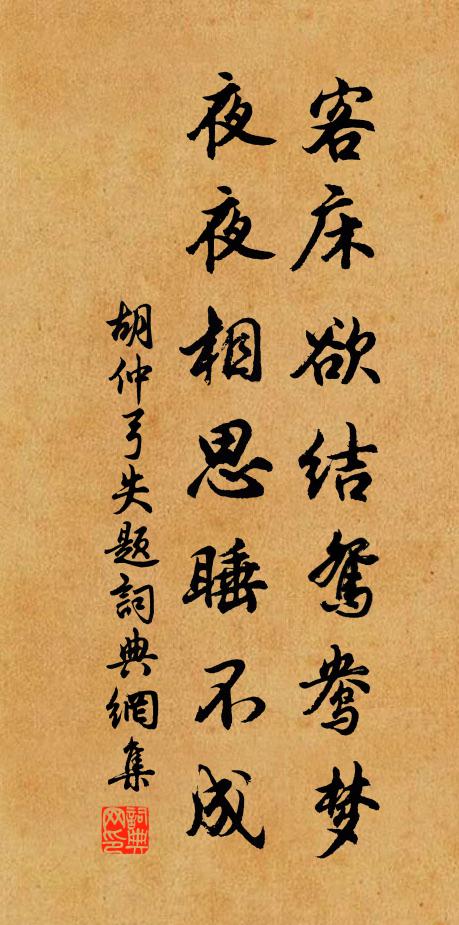 客床欲结鸳鸯梦
夜夜相思睡不成
胡仲弓失题詞典網集
詞典网印